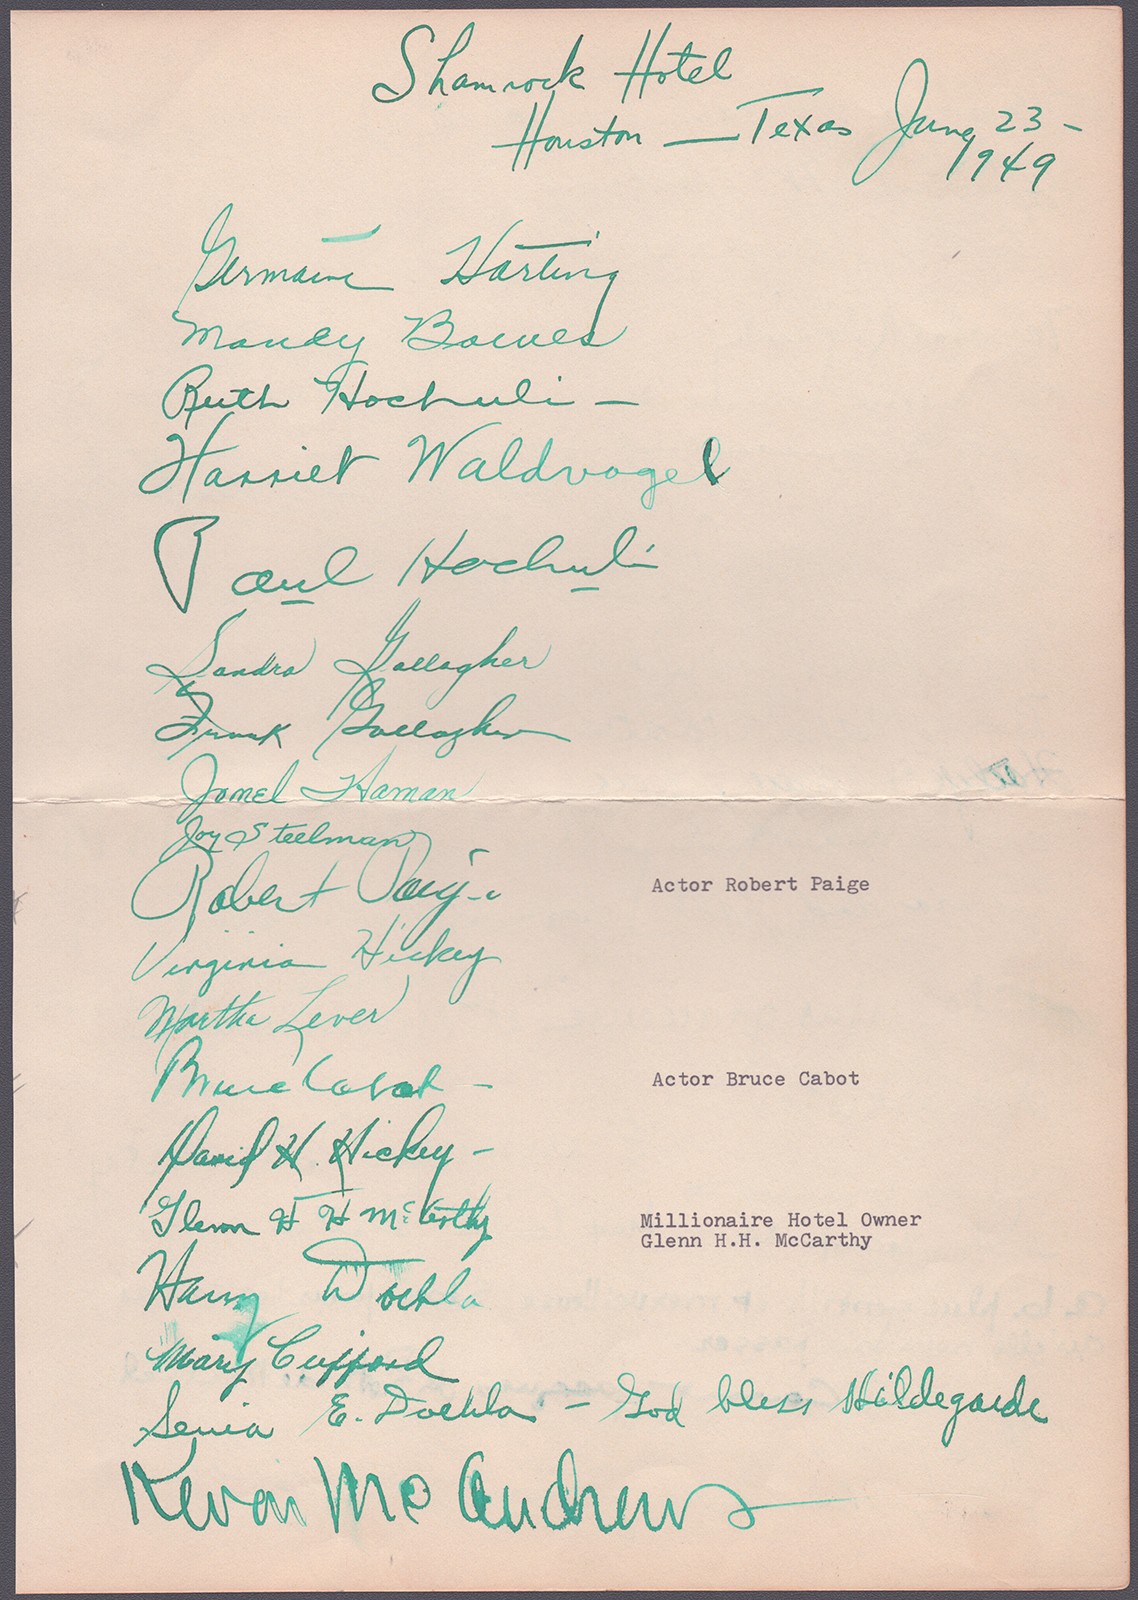 Shamrock Hotel
Houston — Texas June 23 -
1949
Germaine Harting
Mandy Bowes
Ruth Hochuli —
Harriet Waldvogel
Paul Hochuli
Sandra Gallagher
Frank Gallagher
Jomel Haman
Joy Steelman
Robert Paige
Actor Robert Paige
Virginia Hickey
Martha Lever
Bruce Cabot -
Actor Bruce Cabot
David H. Hickey -
Glenn H H McCarthy
Millionaire Hotel Owner
Glenn H.H. McCarthy
Harry Doehla
Mary Clifford
E. Doehla - God bless Hildegarde
Kevan McAndrews